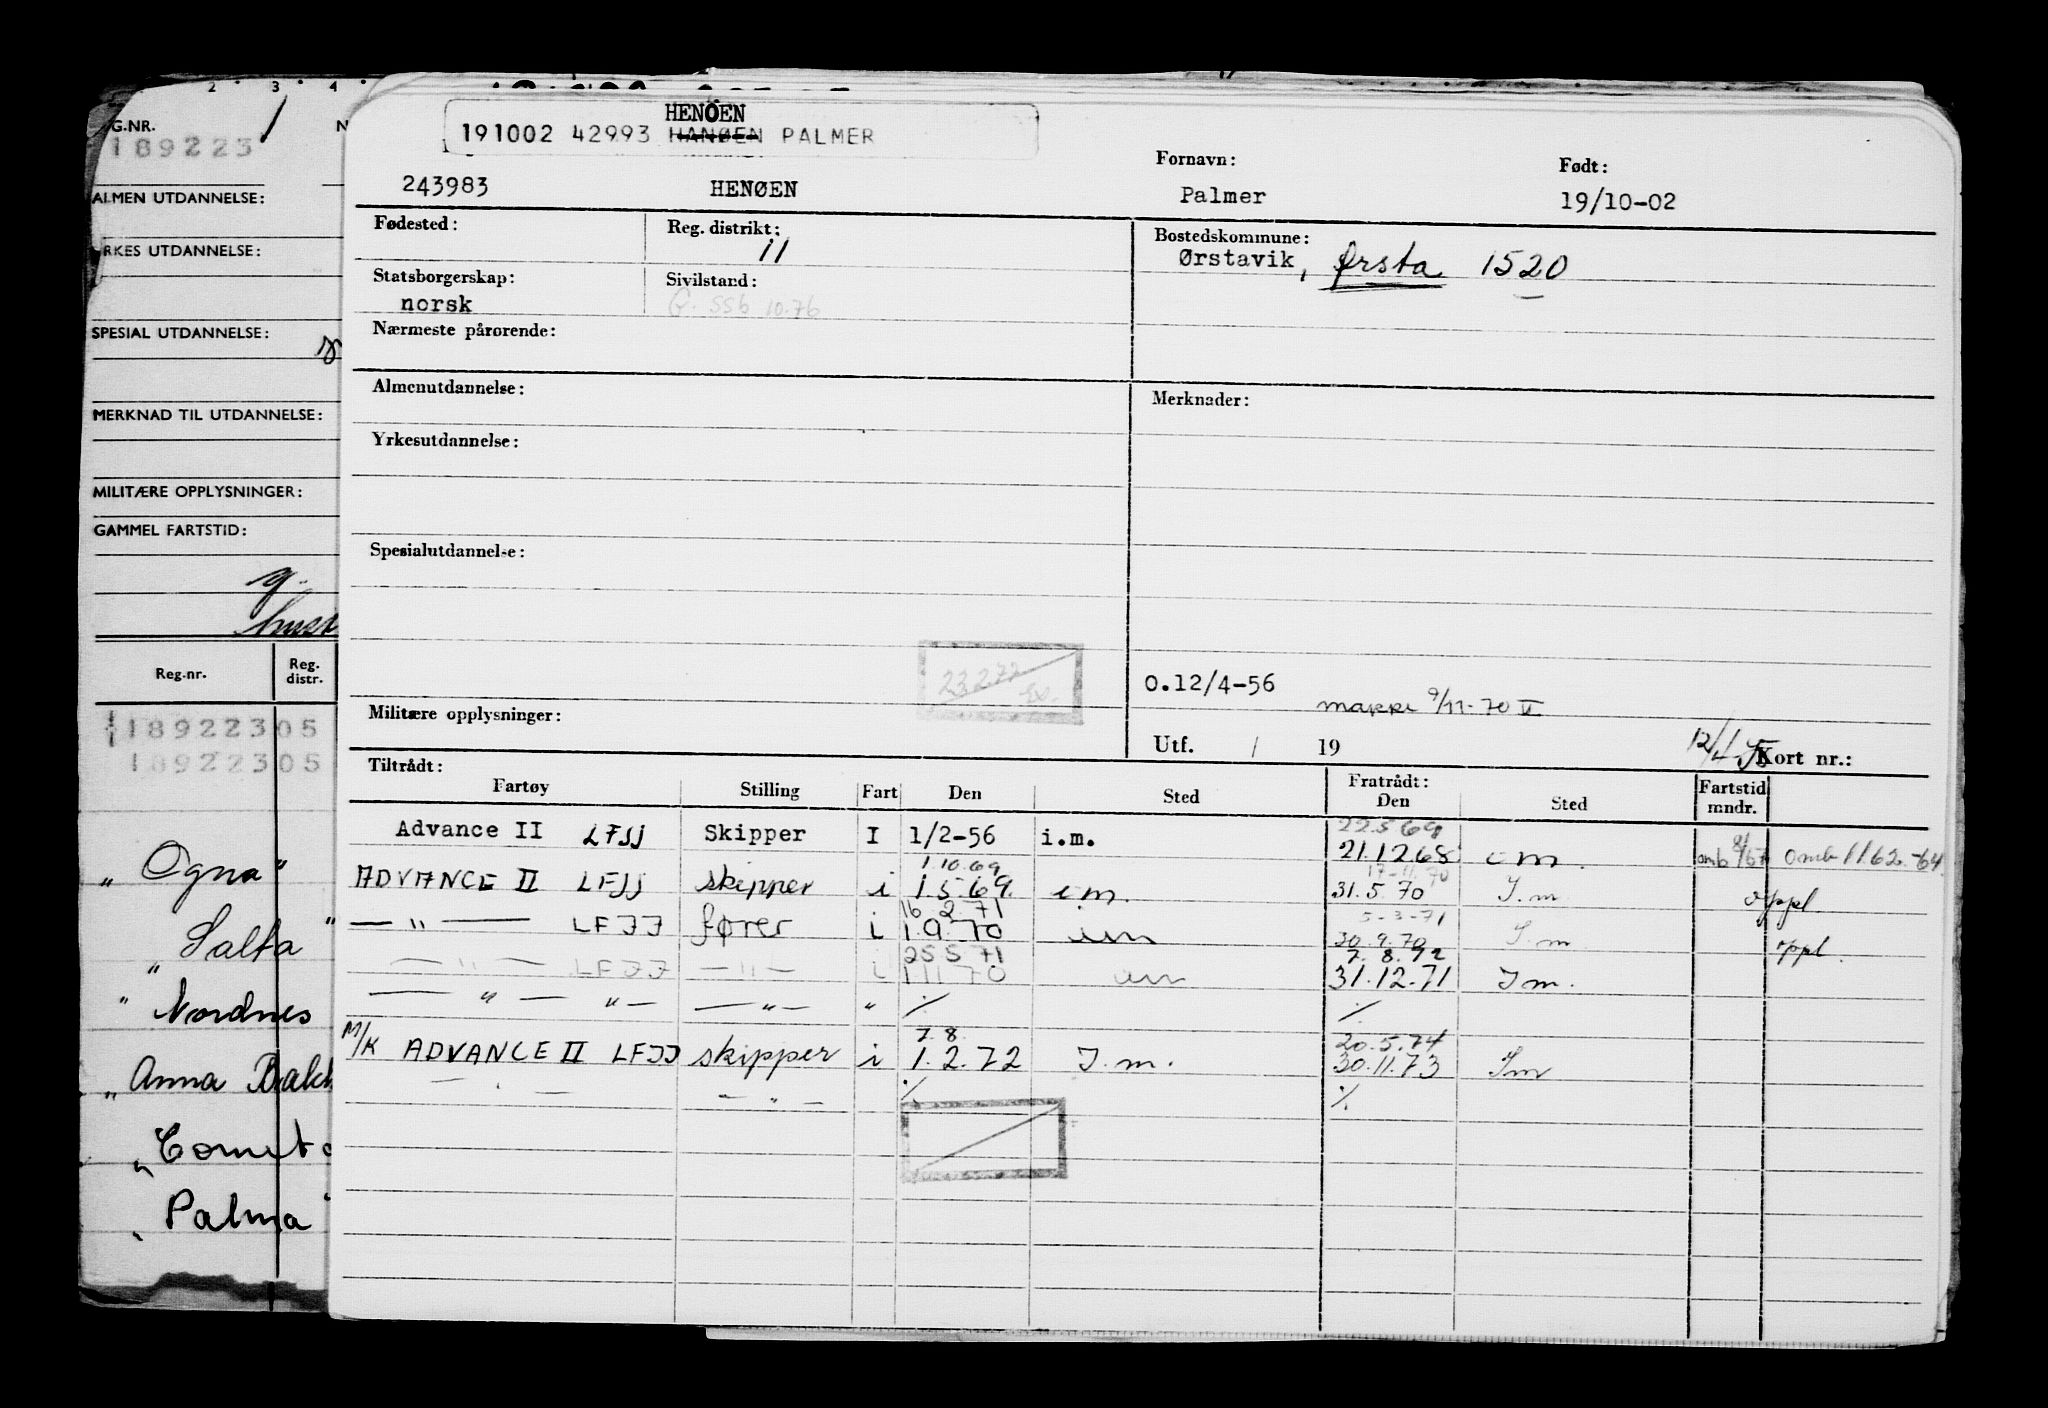 2 . 3 . 4 .
G.NR.
189223
ALMEN UTDANNELSE:
RKES UTDANNELSE:
SPESIAL UTDANNELSE:
MERKNAD TIL UTDANNELSE:
MILITÆRE OPPLYSNINGER:
GAMMEL FARTSTID:
g.
Reg.nr. Reg. distr.
18922305
18922305
„ Ogna "
„ Salta "
" Nordnes
„ Anna Bakk
„ Comet
„ Palma "
HENØEN
191002 42993 HANØEN PALMER
Fornavn: Født:
243983 HENØEN Palmer 19/10-02
Fødested: Reg. distrikt: 11 Bostedskommune:
Ørstavik, Ørsta 1520
Statsborgerskap: Sivilstand:
norsk G. SSB 10.76
Nærmeste pårørende:
Almenutdannelse: Merknader:
Yrkesutdannelse:
Spesialutdannelse:
O.12/4-56
makke 9/11-70
Militære opplysninger:
Utf. / 19 12/4 Kort nr.:
Tiltrådt: Fratrådt: Fartstid
Fartøy Stilling Fart Den Sted Den Sted mndr.
22.5 69
Advance II LFJJ Skipper I 1/2-56 i.m. 21.12.68 i m. omb 8/67 omb 11.62.-64
1.10.69 17-11.70
ADVANCE II LFJJ skipper i 1.5.69. i m. 31.5.70 I.m oppl.
16.2.71 5-3-71
— " — LFJJ fører i 1.9.70 im 30.9.70 I.m oppl.
25 5 71 7.8.72
— " — LFJJ — " — i 1 11 70 im 31.12.71 I m.
— " — " — — " — " ./. ./.
7.8. 20.5.74
M/K ADVANCE II LFJJ skipper i 1.2.72 I.m. 30.11.73 Im
— " — — " — ./. ./.